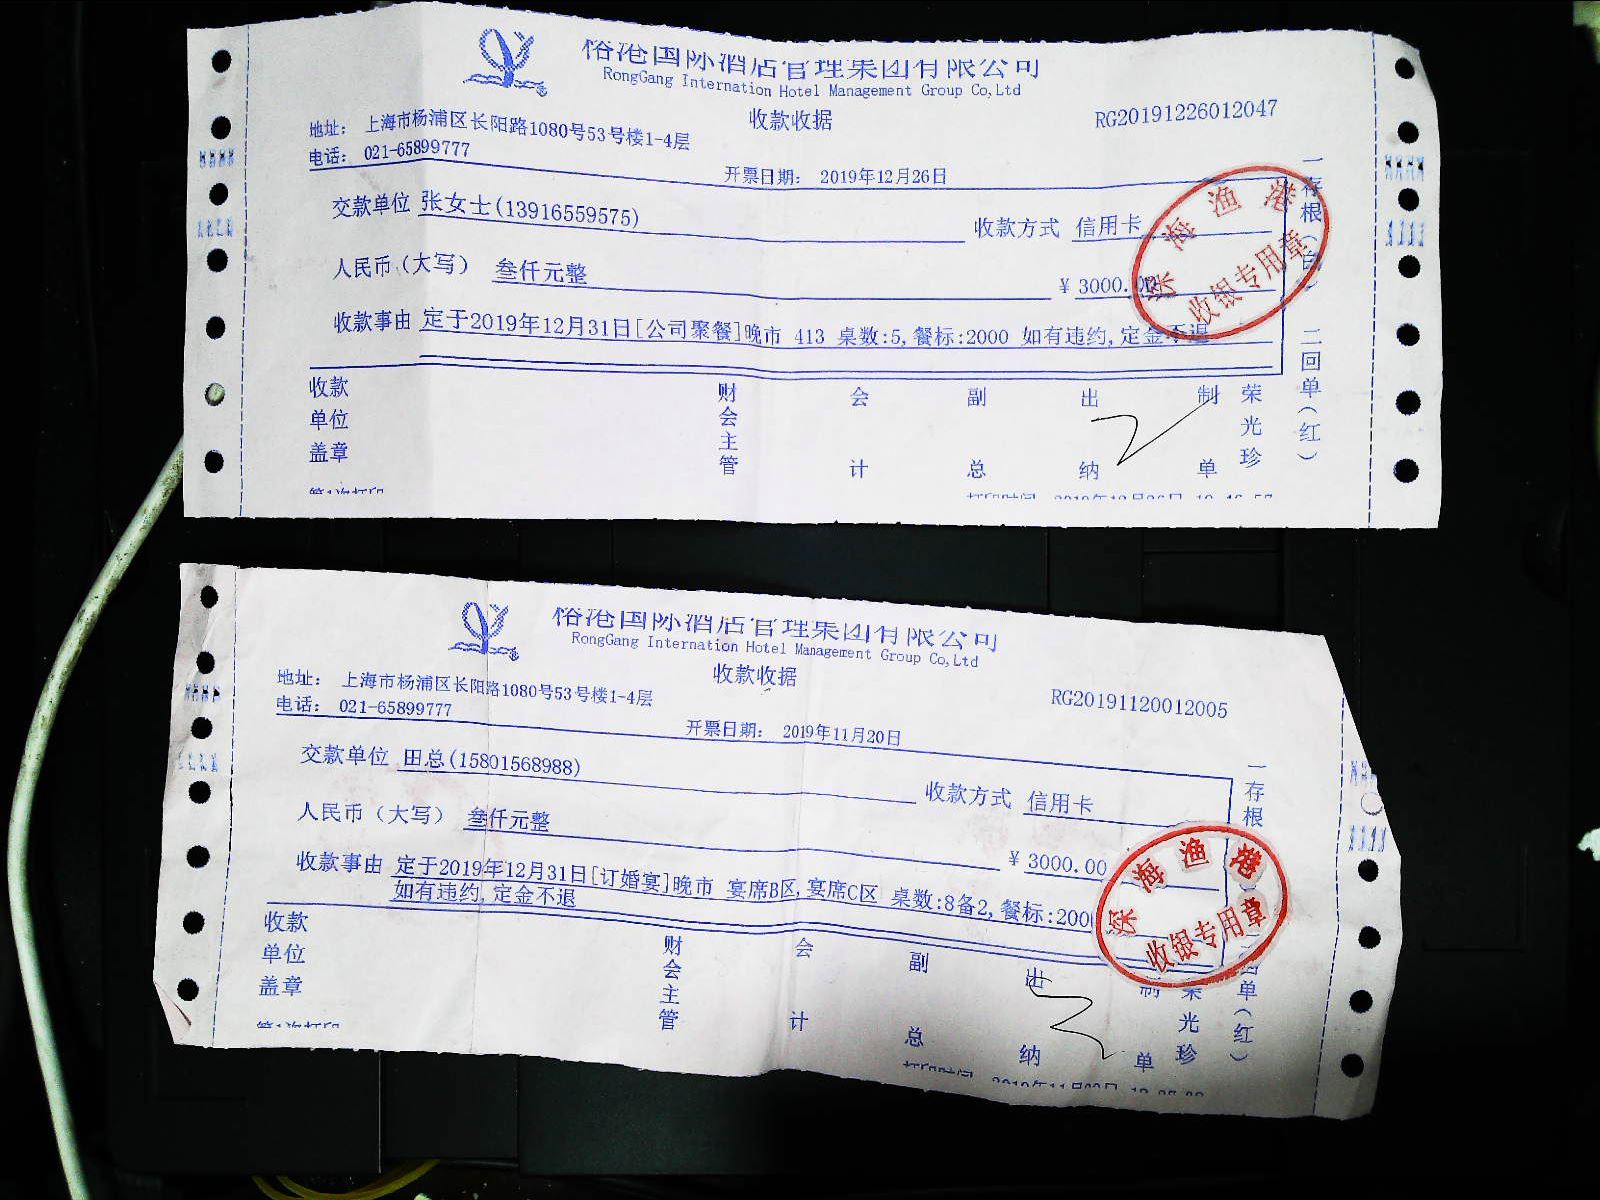 裕港国际酒店管理集团有限公司
RongGang Internation Hotel Management Group Co,Ltd
收款收据
RG20191226012047
地址： 上海市杨浦区长阳路1080号53号楼1-4层
电话： 021-65899777
开票日期： 2019年12月26日
交款单位 张女士(13916559575)
收款方式 信用卡
人民币（大写） 叁仟元整
¥ 3000.00
收款事由 定于2019年12月31日[公司聚餐]晚市 413 桌数:5,餐标:2000 如有违约,定金不退
一存根（白） 二回单（红）
深海渔港
收银专用章
收款单位盖章
财会主管
会计
副总
出纳
制单
荣光珍
第1次打印
打印时间 2019年12月26日
裕港国际酒店管理集团有限公司
RongGang Internation Hotel Management Group Co,Ltd
收款收据
RG20191120012005
地址： 上海市杨浦区长阳路1080号53号楼1-4层
电话： 021-65899777
开票日期： 2019年11月20日
交款单位 田总(15801568988)
收款方式 信用卡
人民币（大写） 叁仟元整
¥ 3000.00
收款事由 定于2019年12月31日[订婚宴]晚市 宴席B区,宴席C区 桌数:8备2,餐标:200
如有违约,定金不退
一存根 回单（红）
深海渔港
收银专用章
收款单位盖章
财会主管
会计
副总
出纳
制单
荣光珍
第1次打印
打印时间